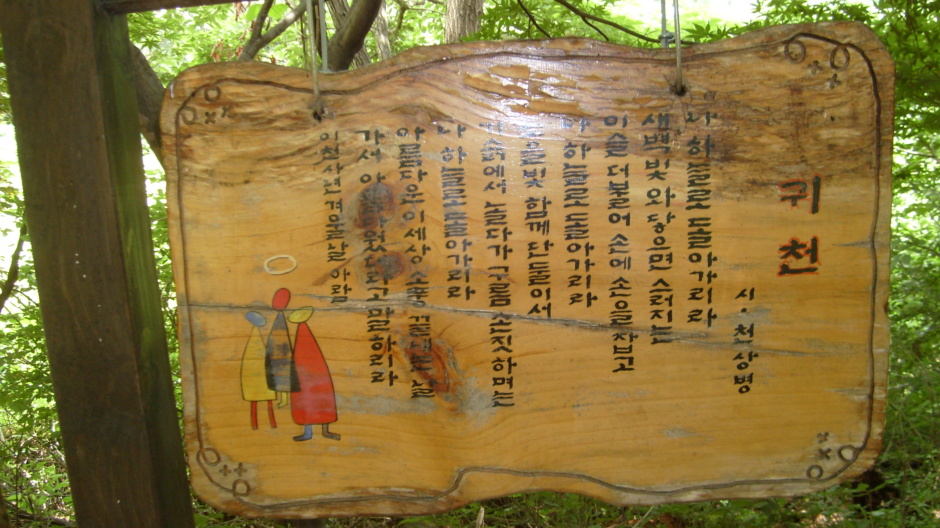 귀천
시·천상병
나 하늘로 돌아가리라
새벽빛 와 닿으면 스러지는
이슬 더불어 손에 손을 잡고
나 하늘로 돌아가리라
노을빛 함께 단 둘이서
기슭에서 놀다가 구름 손짓하며는
나 하늘로 돌아가리라
아름다운 이 세상 소풍 끝내는 날
가서 아름다웠다고 말하리라
이천사년 겨울날 아람